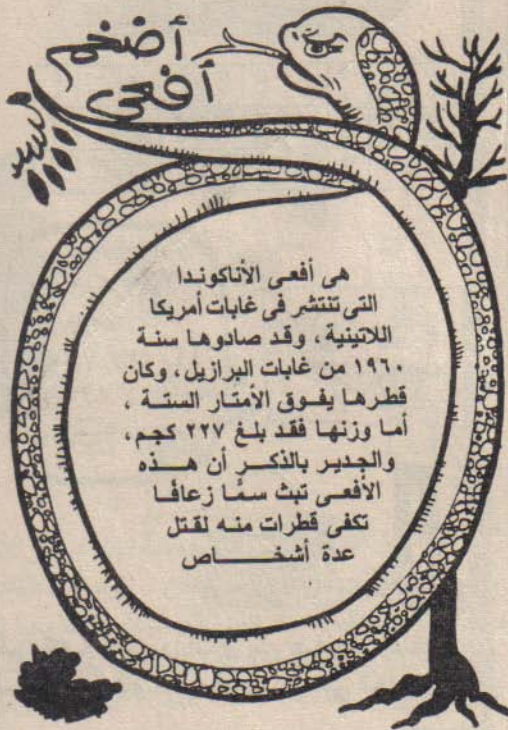 أضخم
أفعى
هى أفعى الأناكوندا
التى تنتشر فى غابات أمريكا
اللاتينية ، وقد صادوها سنة
١٩٦٠ من غابات البرازيل ، وكان
قطرها يفوق الأمتار الستة ،
أما وزنها فقد بلغ ٢٢٧ كجم ،
والجدير بالذكر أن هذه
الأفعى تبث سمًّا زعافًا
تكفى قطرات منه لقتل
عدة أشخاص